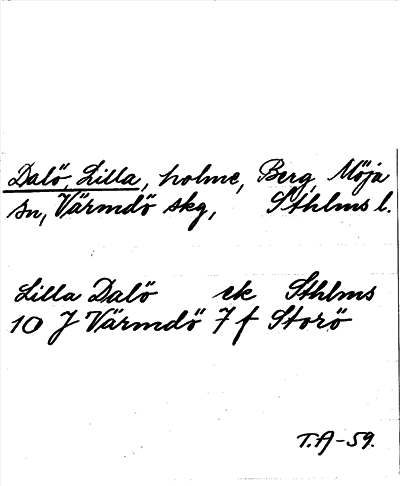 Dalö, Lilla, holme, Berg, Möja
sn, Värmdö skg, Sthlms l.
Lilla Dalö ek Sthlms
10 J Värmdö 7 f Storö
T.A-59.